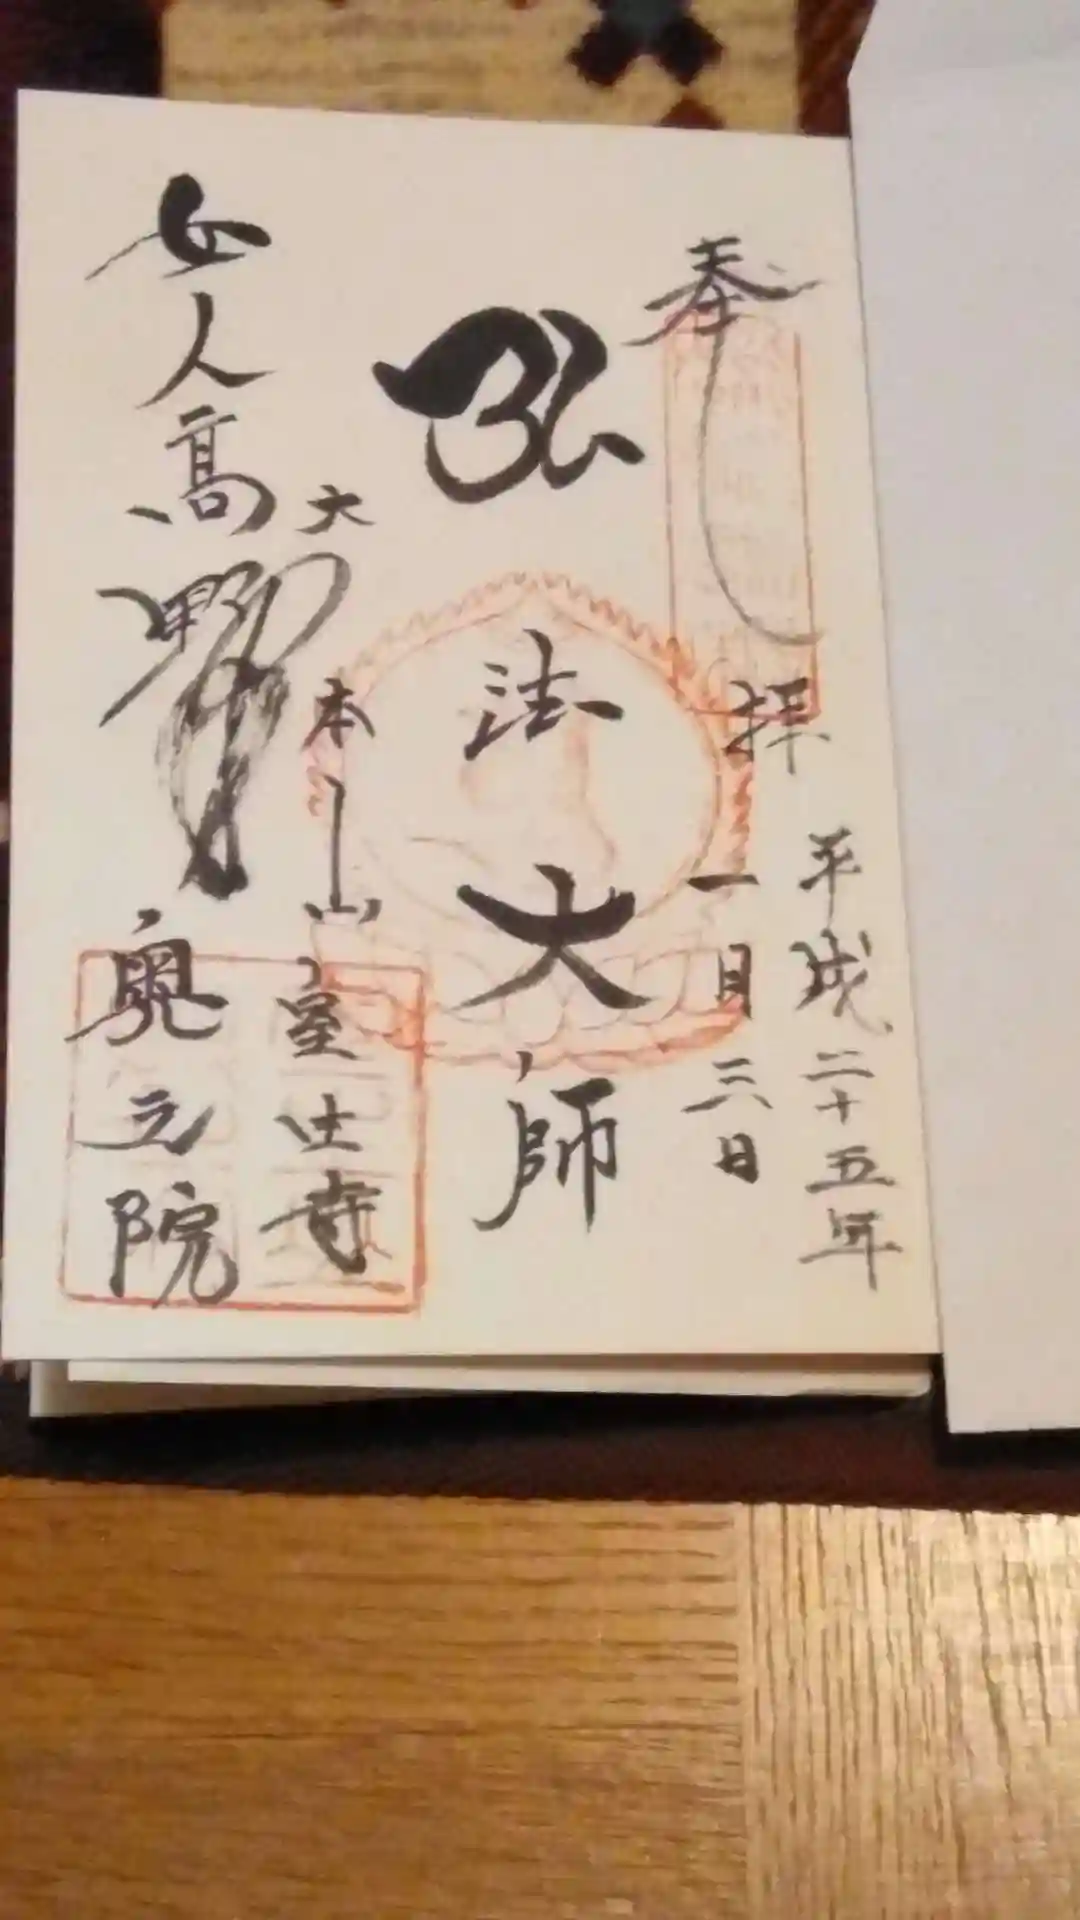 奉拝
平成二十五年
一月三日
弘法大師
大本山室生寺
女人高野奥之院